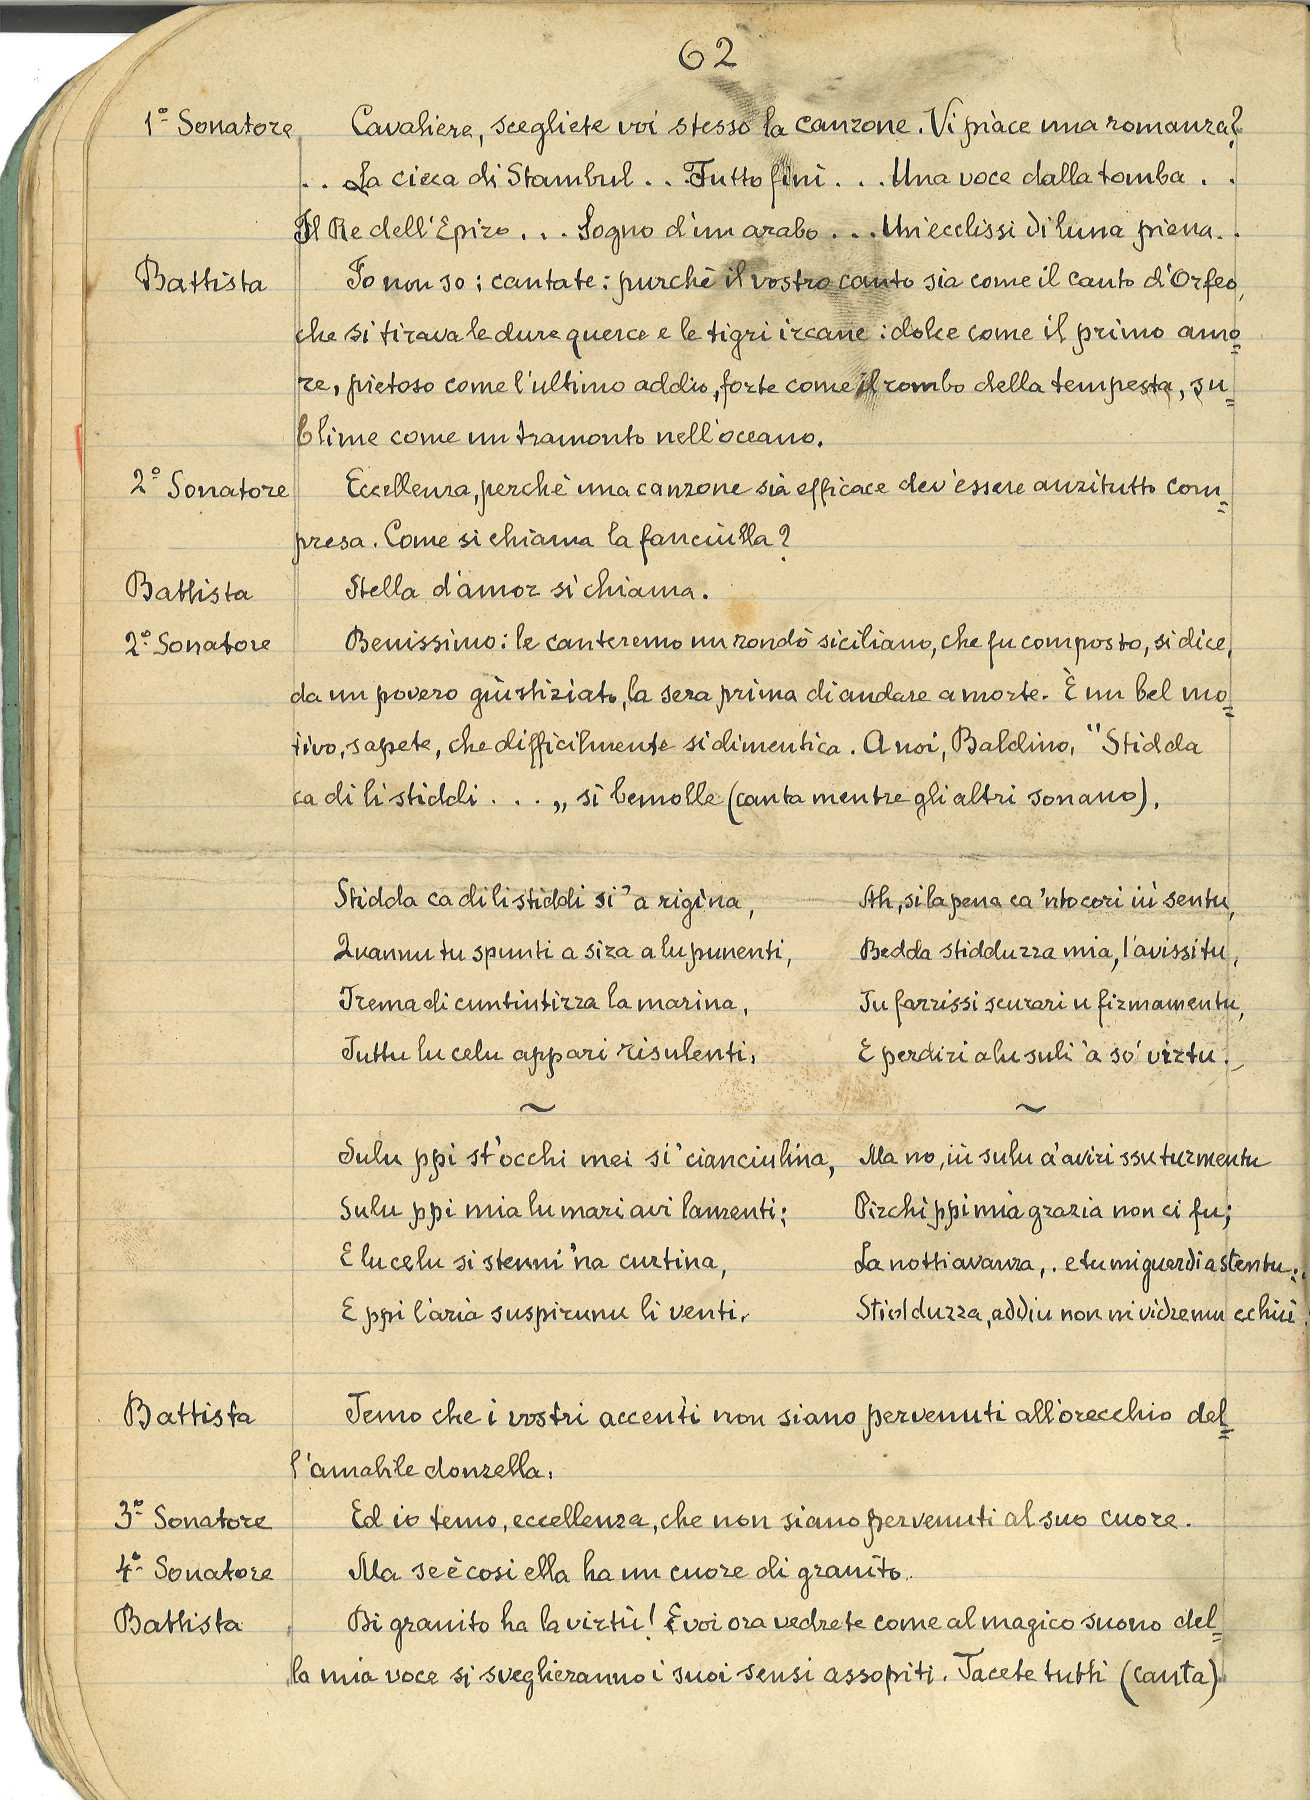 62
1º Sonatore Cavaliere, scegliete voi stesso la canzone. Vi piace una romanza?
.. La cieca di Stambul .. Tutto finì ... Una voce dalla tomba ..
Il Re dell'Epiro ... Sogno d'un arabo ... Un'ecclissi di luna piena..
Battista Io non so; cantate: purchè il vostro canto sia come il canto d'Orfeo,
che si tirava le dure querce e le tigri ircane: dolce come il primo amo=
re, pietoso come l'ultimo addio, forte come il rombo della tempesta, su=
blime come un tramonto nell'oceano.
2º Sonatore Eccellenza, perchè una canzone sia efficace dev'essere anzitutto com=
presa. Come si chiama la fanciulla?
Battista Stella d'amor si chiama.
2º Sonatore Benissimo: le canteremo un rondò siciliano, che fu composto, si dice,
da un povero giustiziato, la sera prima di andare a morte. È un bel mo=
tivo, sapete, che difficilmente si dimentica. A noi, Baldino, "Stidda
ca di li stiddi ... „ si bemolle (canta mentre gli altri sonano).
Stidda ca di li stiddi si' a rigina,
Quannu tu spunti a sira a lu punenti,
Trema di cuntintizza la marina,
Tuttu lu celu appari risulenti,
~
Sulu ppi st'occhi mei si' cianciulina,
Sulu ppi mia lu mari avi lamenti;
E lu celu si stenni 'na curtina,
E ppi l'aria suspirunu li venti.
Ah, si la pena ca 'nto cori iù sentu,
Bedda stidduzza mia, l'avissi tu,
Tu farrissi scurari u firmamentu,
E perdiri a lu suli 'a so' virtu.
~
Ma no, iù sulu a'aviri ssu turmentu
Pirchì ppi mia grazia non ci fu;
La notti avanza,. e tu mi guardi a stentu..
Stidduzza, addiu non ni vidremu cchiù.
Battista Temo che i vostri accenti non siano pervenuti all'orecchio del=
l'amabile donzella.
3º Sonatore Ed io temo, eccellenza, che non siano pervenuti al suo cuore.
4º Sonatore Ma se è così ella ha un cuore di granito..
Battista Di granito ha la virtù! E voi ora vedrete come al magico suono del=
la mia voce si sveglieranno i suoi sensi assopiti. Tacete tutti (canta)